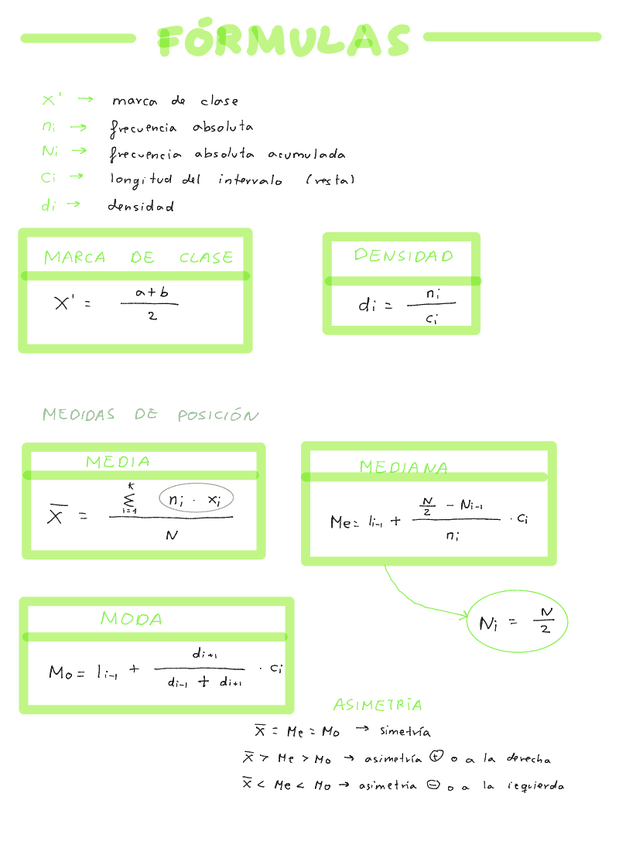 FÓRMULAS
x' → marca de clase
ni → frecuencia absoluta
Ni → frecuencia absoluta acumulada
Ci → longitud del intervalo (resta)
di → densidad
MARCA DE CLASE
X' = a+b / 2
DENSIDAD
di = ni / ci
MEDIDAS DE POSICIÓN
MEDIA
X̅ = Σ i=1 K ni · xi / N
MEDIANA
Me = li-1 + N/2 - Ni-1 / ni · ci
Ni = N/2
MODA
Mo = li-1 + di+1 / di-1 + di+1 · ci
ASIMETRÍA
X̅ = Me = Mo → simetría
X̅ > Me > Mo → asimetría ⊕ o a la derecha
X̅ < Me < Mo → asimetría ⊖ o a la izquierda